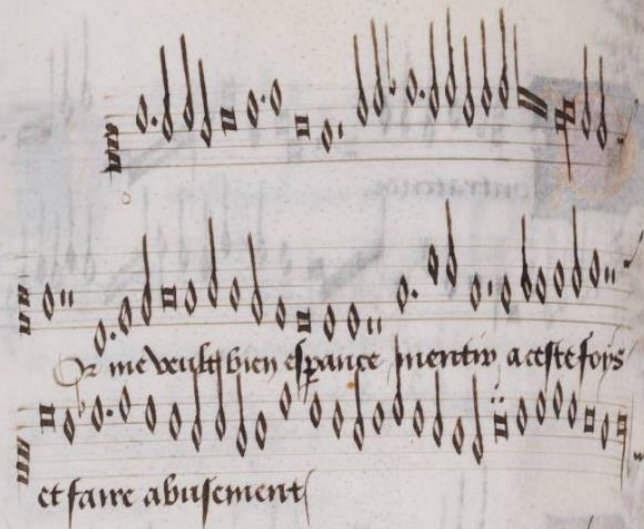 Or me veult bien espance mentir aceste foys
et faire abusement